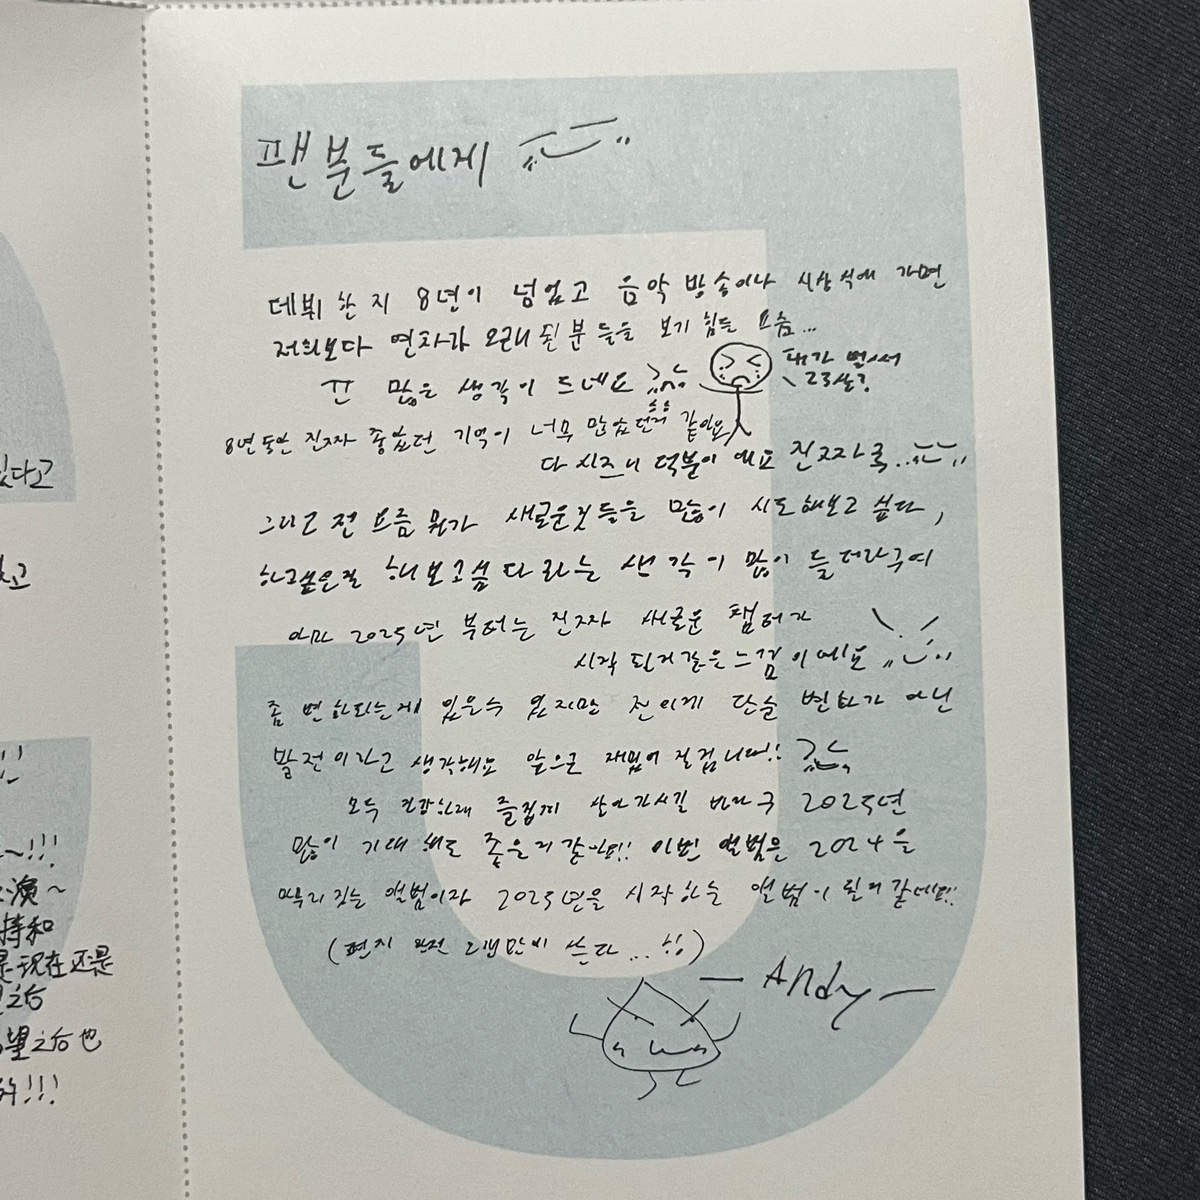 있다고
고
!!
~!!!
演~
持和
是现在还是
望之后
望之后也
许!!!
팬분들에게
데뷔 한 지 8년이 넘었고 음악 방송이나 시상식에 가면
저희보다 연차가 오래된 분들을 보기 힘든 요즘...
많은 생각이 드네요
내가 벌써
23살?
8년동안 진짜 좋았던 기억이 너무 많았던거 같아요
다 시즈니 덕분이에요 진짜루..
그리고 전 요즘 뭔가 새로운것들을 많이 시도해보고 싶다,
하고싶은걸 해보고싶다라는 생각이 많이 들더라구여
아마 2025년 부터는 진짜 새로운 챕터가
시작 된거같은 느낌이에요
좀 변화되는게 있을수 있지만 전 이게 단순 변화가 아닌
발전이라고 생각해요 앞으로 재밌어 질겁니다!!
모두 건강하게 즐겁게 살아가시길 바라구 2025년
많이 기대 해도 좋을거 같아요!! 이번 앨범은 2024을
마무리 짓는 앨범이자 2025년을 시작하는 앨범이 될거 같네요!!
(편지 완전 오랜만에 쓴다...)
— Andy —